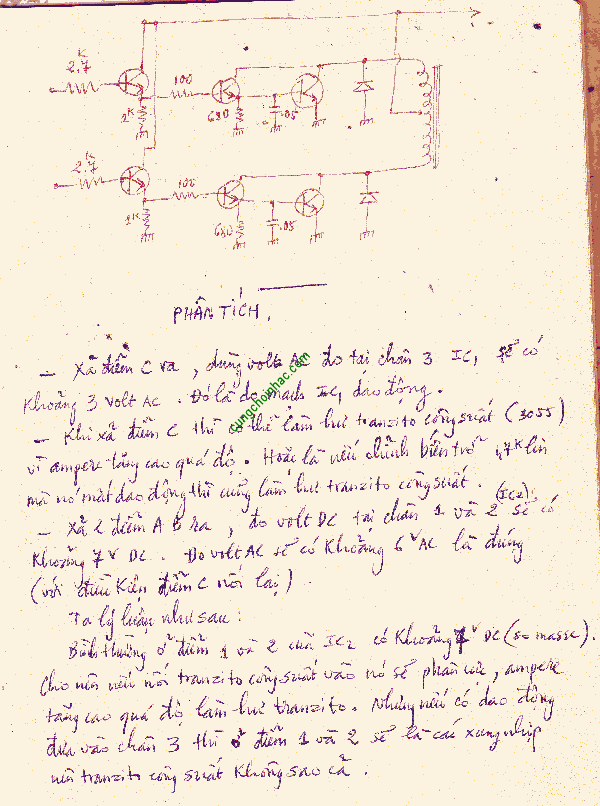 K
2.7
100
1K
680
.05
K
2.7
100
1K
680
.05
PHÂN TÍCH.
– Xã điểm C ra, dùng volt AC đo tại chân 3 IC1 sẽ có
Khoảng 3 volt AC. Đó là do mạch IC1 dao động.
cungchoinhac.com
– Khi xã điểm C thì có thể làm hư tranzito công suất (3055)
vì ampere tăng cao quá độ. Hoặc là nếu chỉnh biến trở 47K lên
mà nó mất dao động thì cũng làm hư tranzito công suất.
– Xã 2 điểm A B ra, đo volt DC tại chân 1 và 2 (IC2) sẽ có
Khoảng 7V DC. Đo volt AC sẽ có Khoảng 6V AC là đúng
(với điều Kiện điểm C nối lại).
Ta lý luận như sau:
Bình thường ở điểm 1 và 2 của IC2 có Khoảng 7V DC (so masse).
Cho nên nếu nối tranzito công suất vào nó sẽ phân cực, ampere
tăng cao quá độ làm hư tranzito. Nhưng nếu có dao động
đưa vào chân 3 thì ở điểm 1 và 2 sẽ là các xung nhịp
nên tranzito công suất Không sao cả.